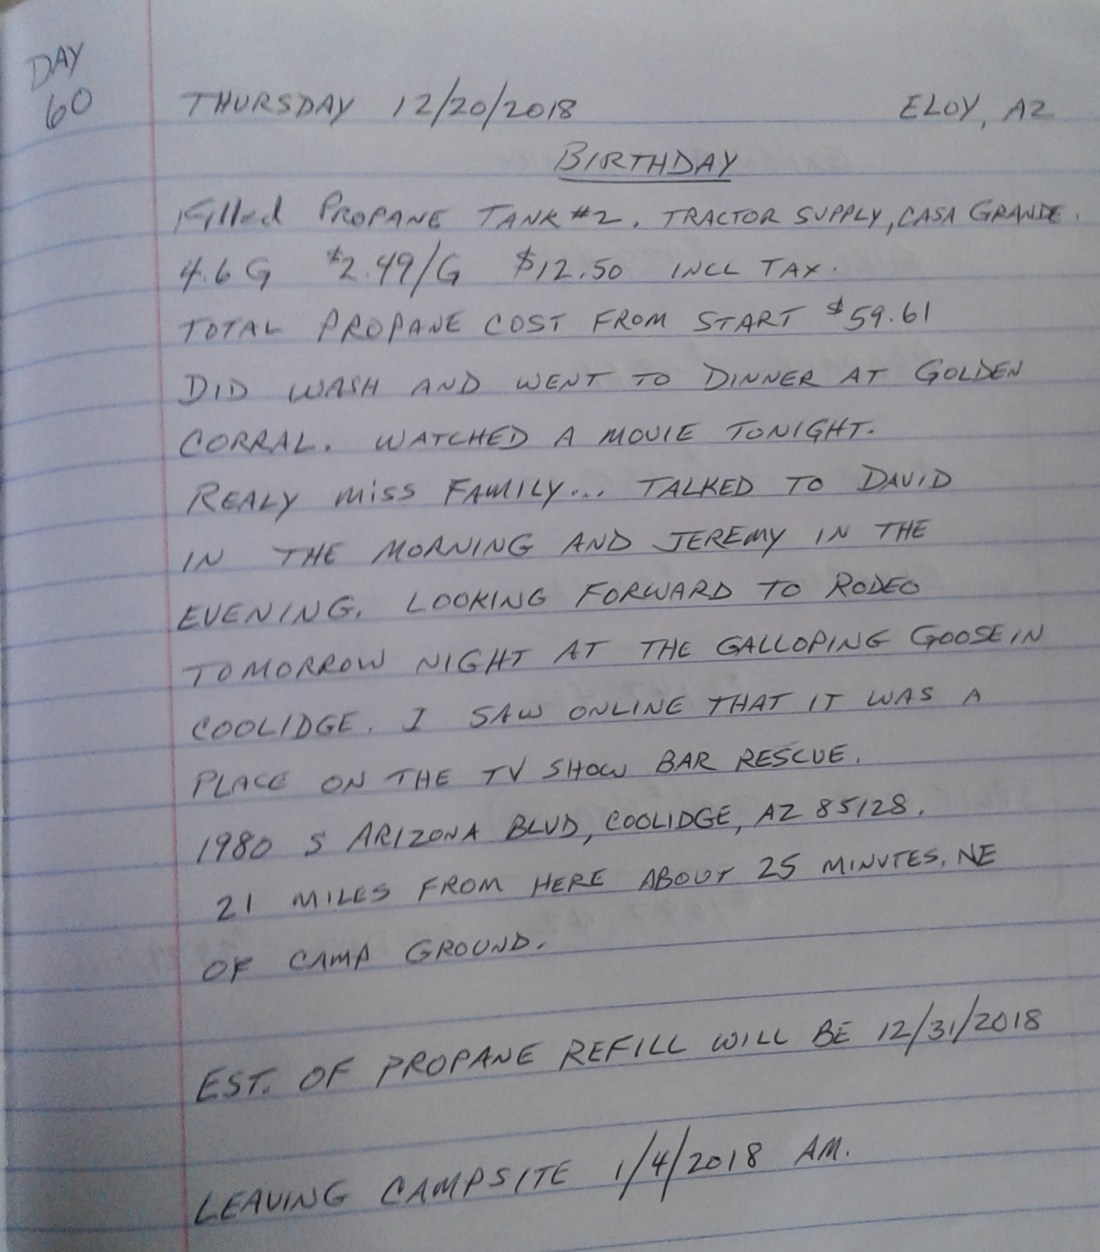 DAY
60
THURSDAY 12/20/2018 ELOY, AZ
BIRTHDAY
Filled PROPANE TANK #2, TRACTOR SUPPLY, CASA GRANDE.
4.6 G $2.49/G $12.50 INCL TAX.
TOTAL PROPANE COST FROM START $59.61
DID WASH AND WENT TO DINNER AT GOLDEN
CORRAL. WATCHED A MOVIE TONIGHT.
REALY MISS FAMILY... TALKED TO DAVID
IN THE MORNING AND JEREMY IN THE
EVENING. LOOKING FORWARD TO RODEO
TOMORROW NIGHT AT THE GALLOPING GOOSE IN
COOLIDGE. I SAW ONLINE THAT IT WAS A
PLACE ON THE TV SHOW BAR RESCUE.
1980 S ARIZONA BLVD, COOLIDGE, AZ 85128.
21 MILES FROM HERE ABOUT 25 MINUTES, NE
OF CAMP GROUND.
EST. OF PROPANE REFILL WILL BE 12/31/2018
LEAVING CAMPSITE 1/4/2018 AM.